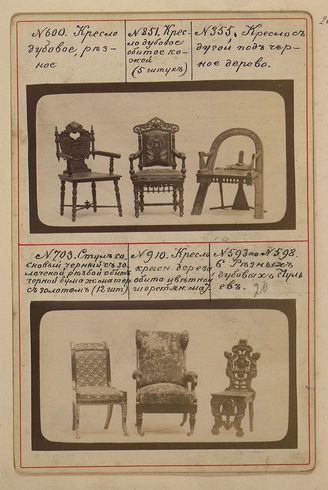 №600. Кресло
дубовое, рѣз-
ное
№851. Крес-
ло дубовое
обитое ко-
жей
(5 штукъ)
№355. Кресло съ
дугой подъ чер-
ное дерево.
№703. Стулъ со-
сновый черный съ зо-
лоченой рѣзьбой обитъ
черной бумажн. матер.
съ золотомъ (12 шт)
№910. Кресло
красн. дерева
обито цвѣтной
шерст.
№593 по №598.
6 Рѣзныхъ
дубовыхъ Стуль
евъ.
20